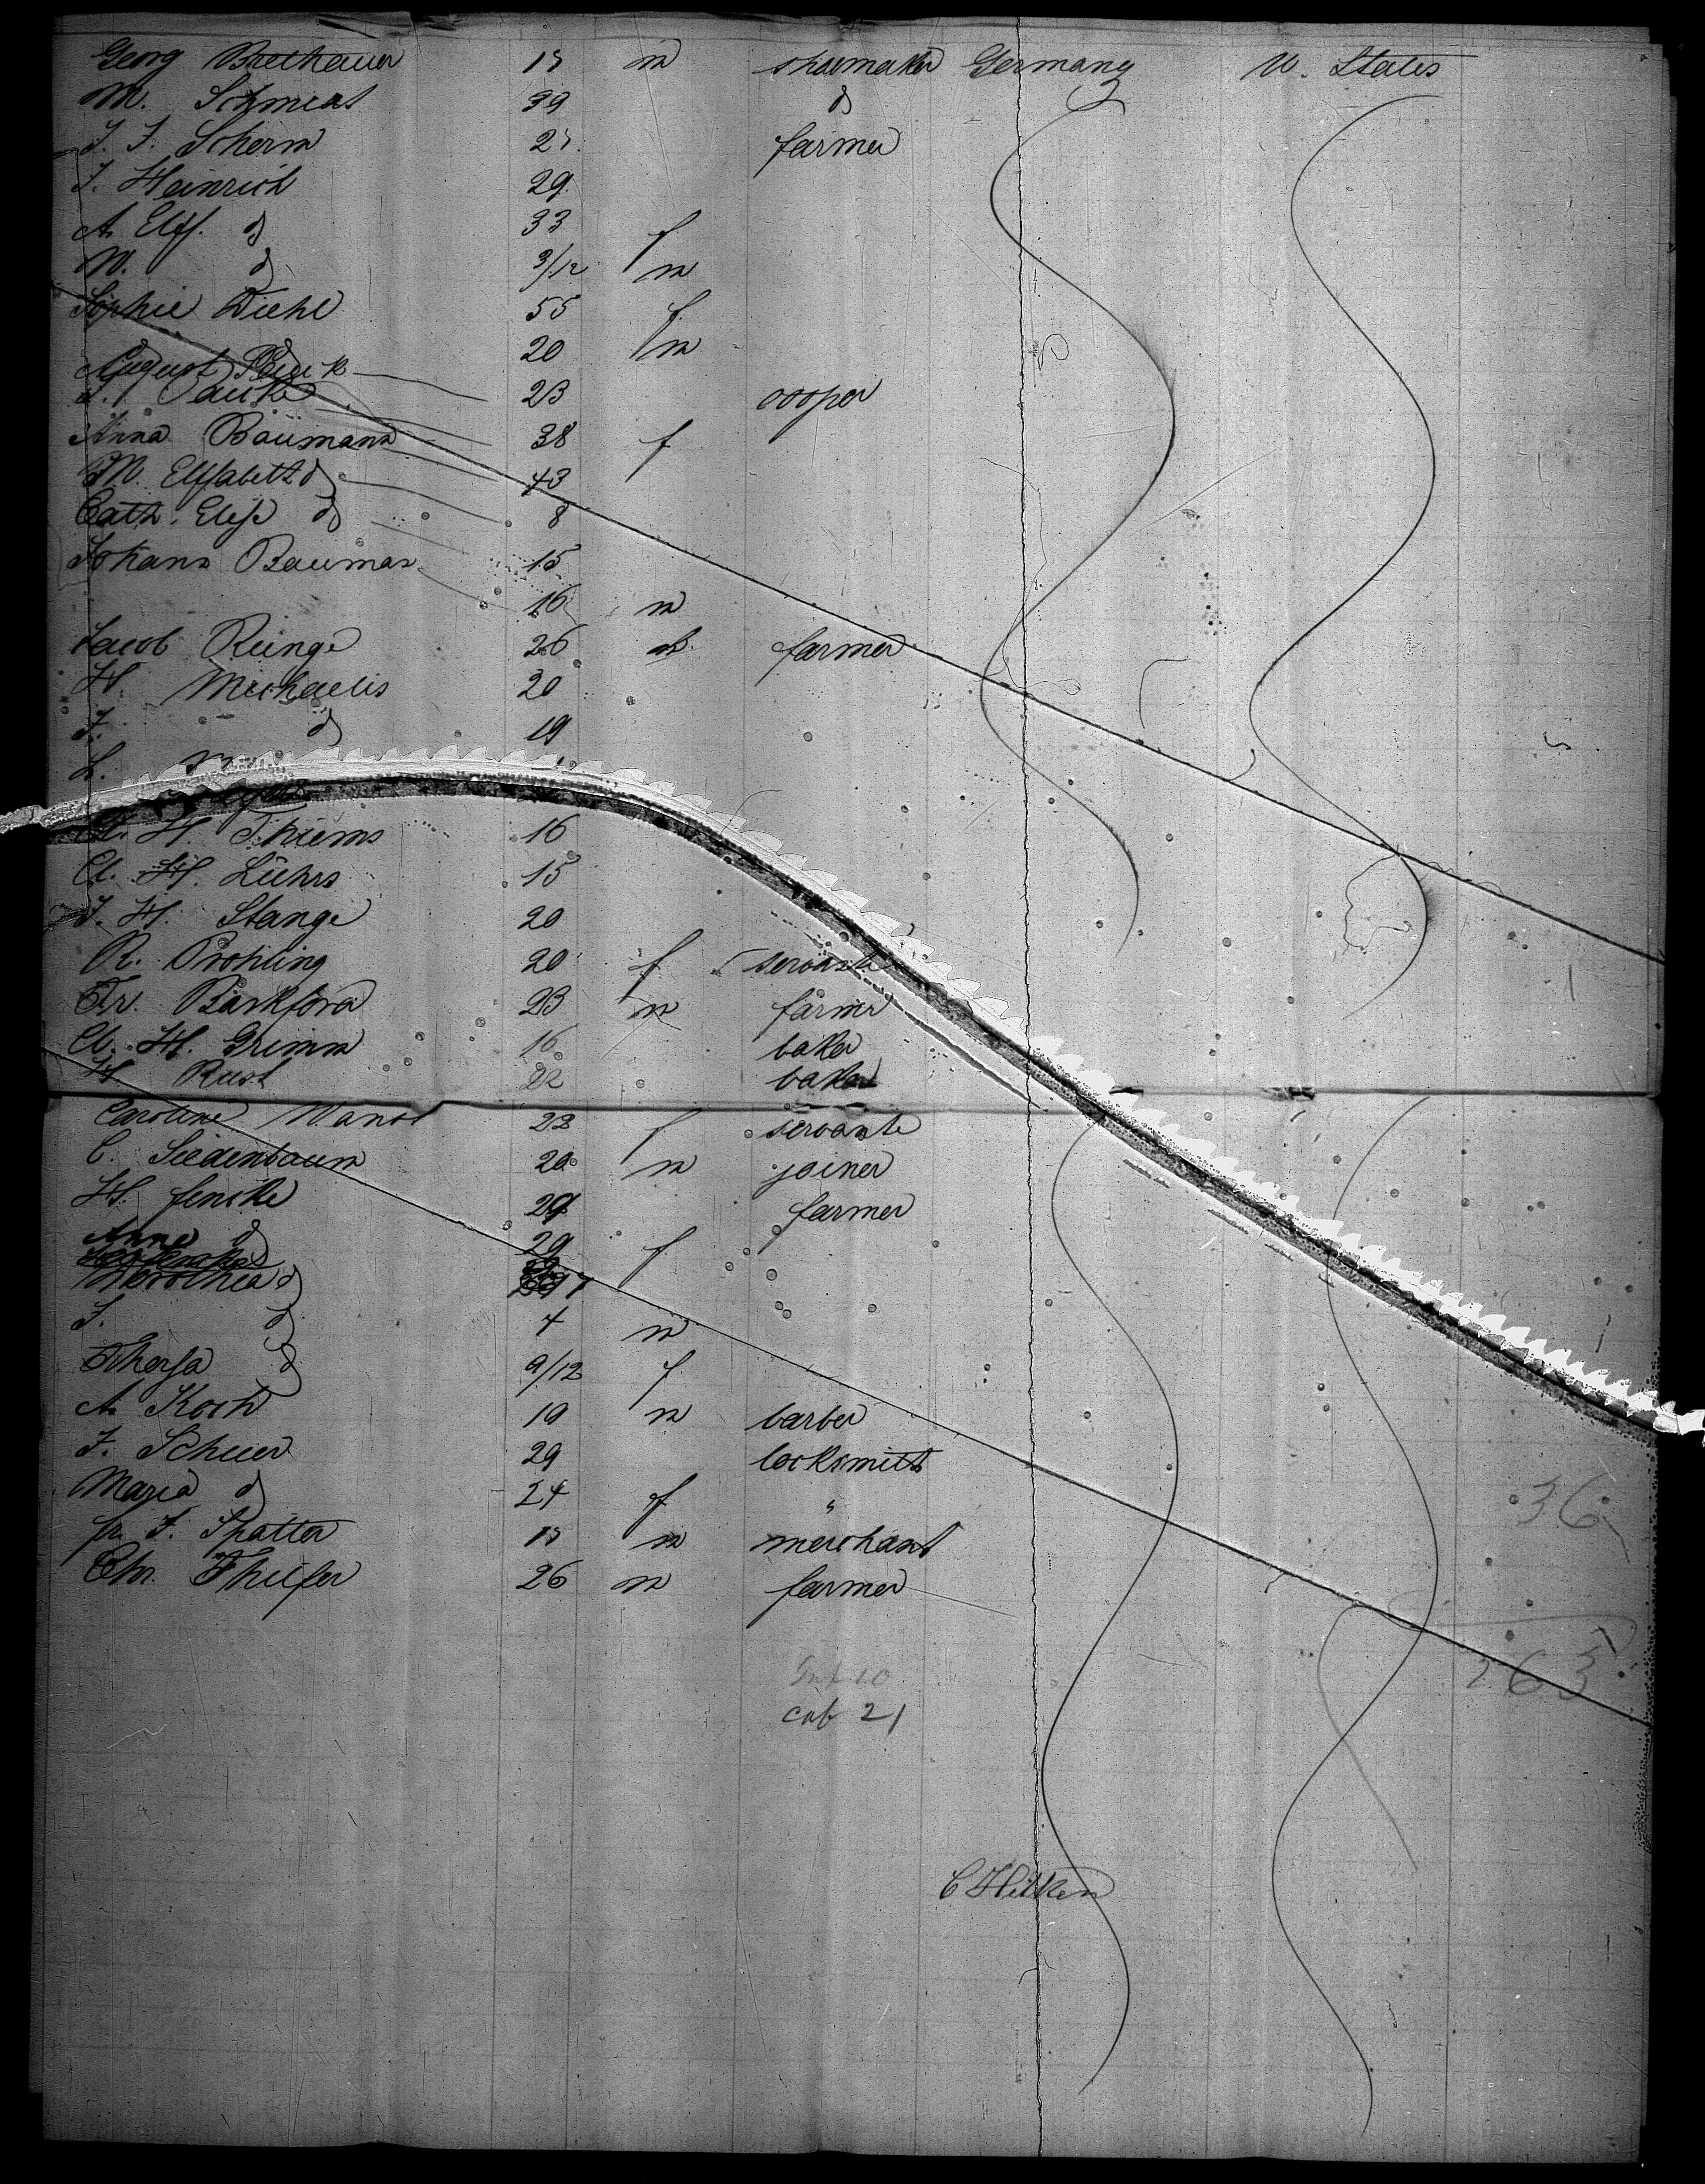 Georg Brethauer 17 m shoemaker Germany U. States
M. Schmidt 39 do
J. J. Scherm farmer
J. Heinrich 29
A. Elis. do 33 f
W. do 3/12 m
Sophie Diehl 55 f
do 20 m
August Beck
23 cooper
Anna Baumann 38 f
M. Elisabeth do 43
Cath. Elise do 8
Johann Bauman 15
16 m
Jacob Runge 26 m. farmer
H. Michaelis 20
J. do 19
L.
H. Thiems 16
Cl. H. Lührs 15
J. H. Stange 20
R. Prohling 20 f servante
Fr. Barkford 23 m farmer
Cl. H. Grimm 16 baker
H. Rust 22 baker
Caroline 23 f servante
C. Siedenbaum 20 m joiner
H. Jencke 29 farmer
Anne do 29 f
Dorothea do 7
J. do 4 m
Theresa do 9/12 f
A. Koch 19 m barber
J. Scheer 29 locksmith
Maria do 24 f "
Fr. J. Spatter m merchant
Chr. 26 m farmer
36
263
Inf 10
cab 21
C Hilken